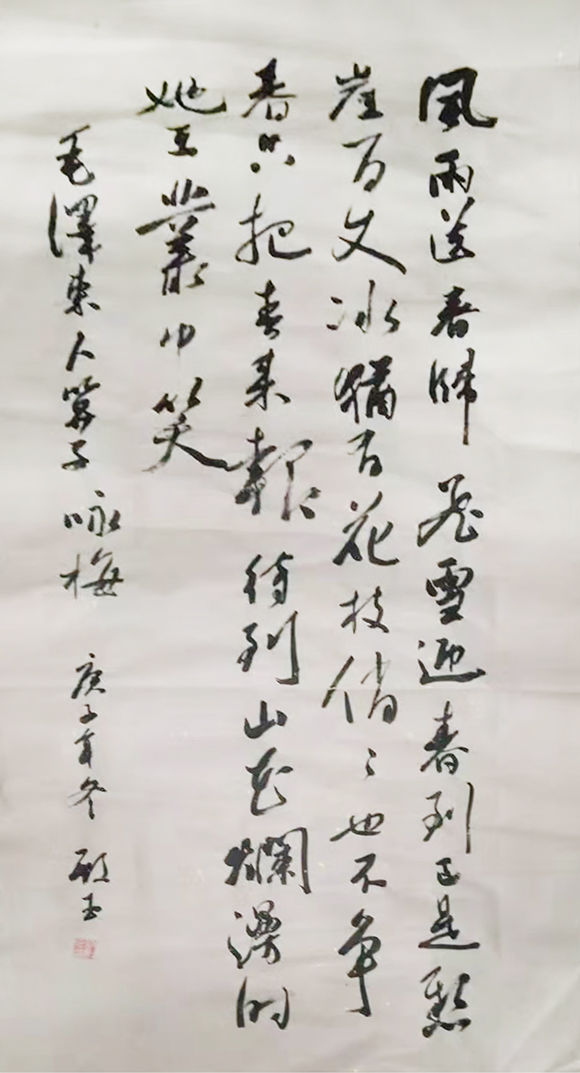 風雨送春歸飛雪迎春到已是懸
崖百丈冰猶有花枝俏俏也不爭
春只把春來報待到山花爛漫時
她在叢中笑
毛澤東卜算子咏梅 庚子年冬